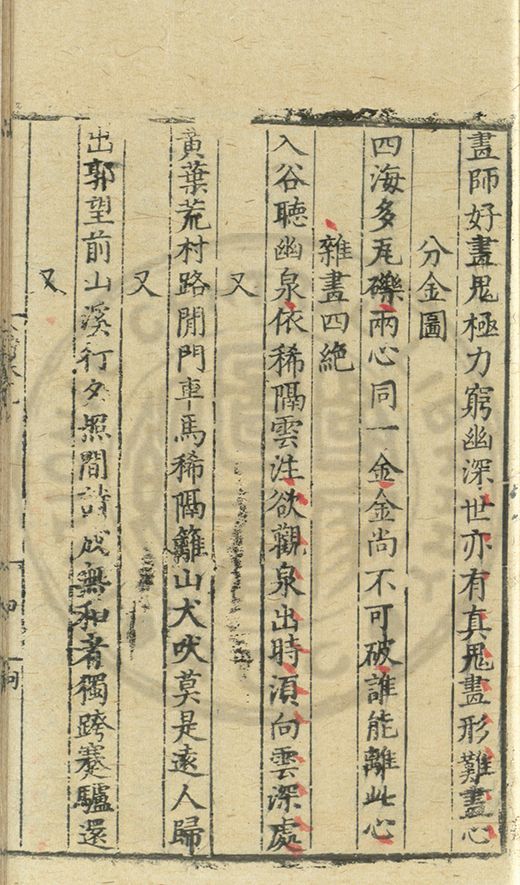 畫師好畫鬼極力窮幽深世亦有真鬼畫形難畫心
分金圖
四海多瓦礫兩心同一金金尚不可破誰能離此心
雜畫四絶
入谷聽幽泉依稀隔雲注欲觀泉出時湏向雲深處
又
黄葉荒村路閒門車馬稀隔籬山犬吠莫是遠人歸
又
出郭望前山溪行夕照間詩成無和者獨跨蹇驢還
又